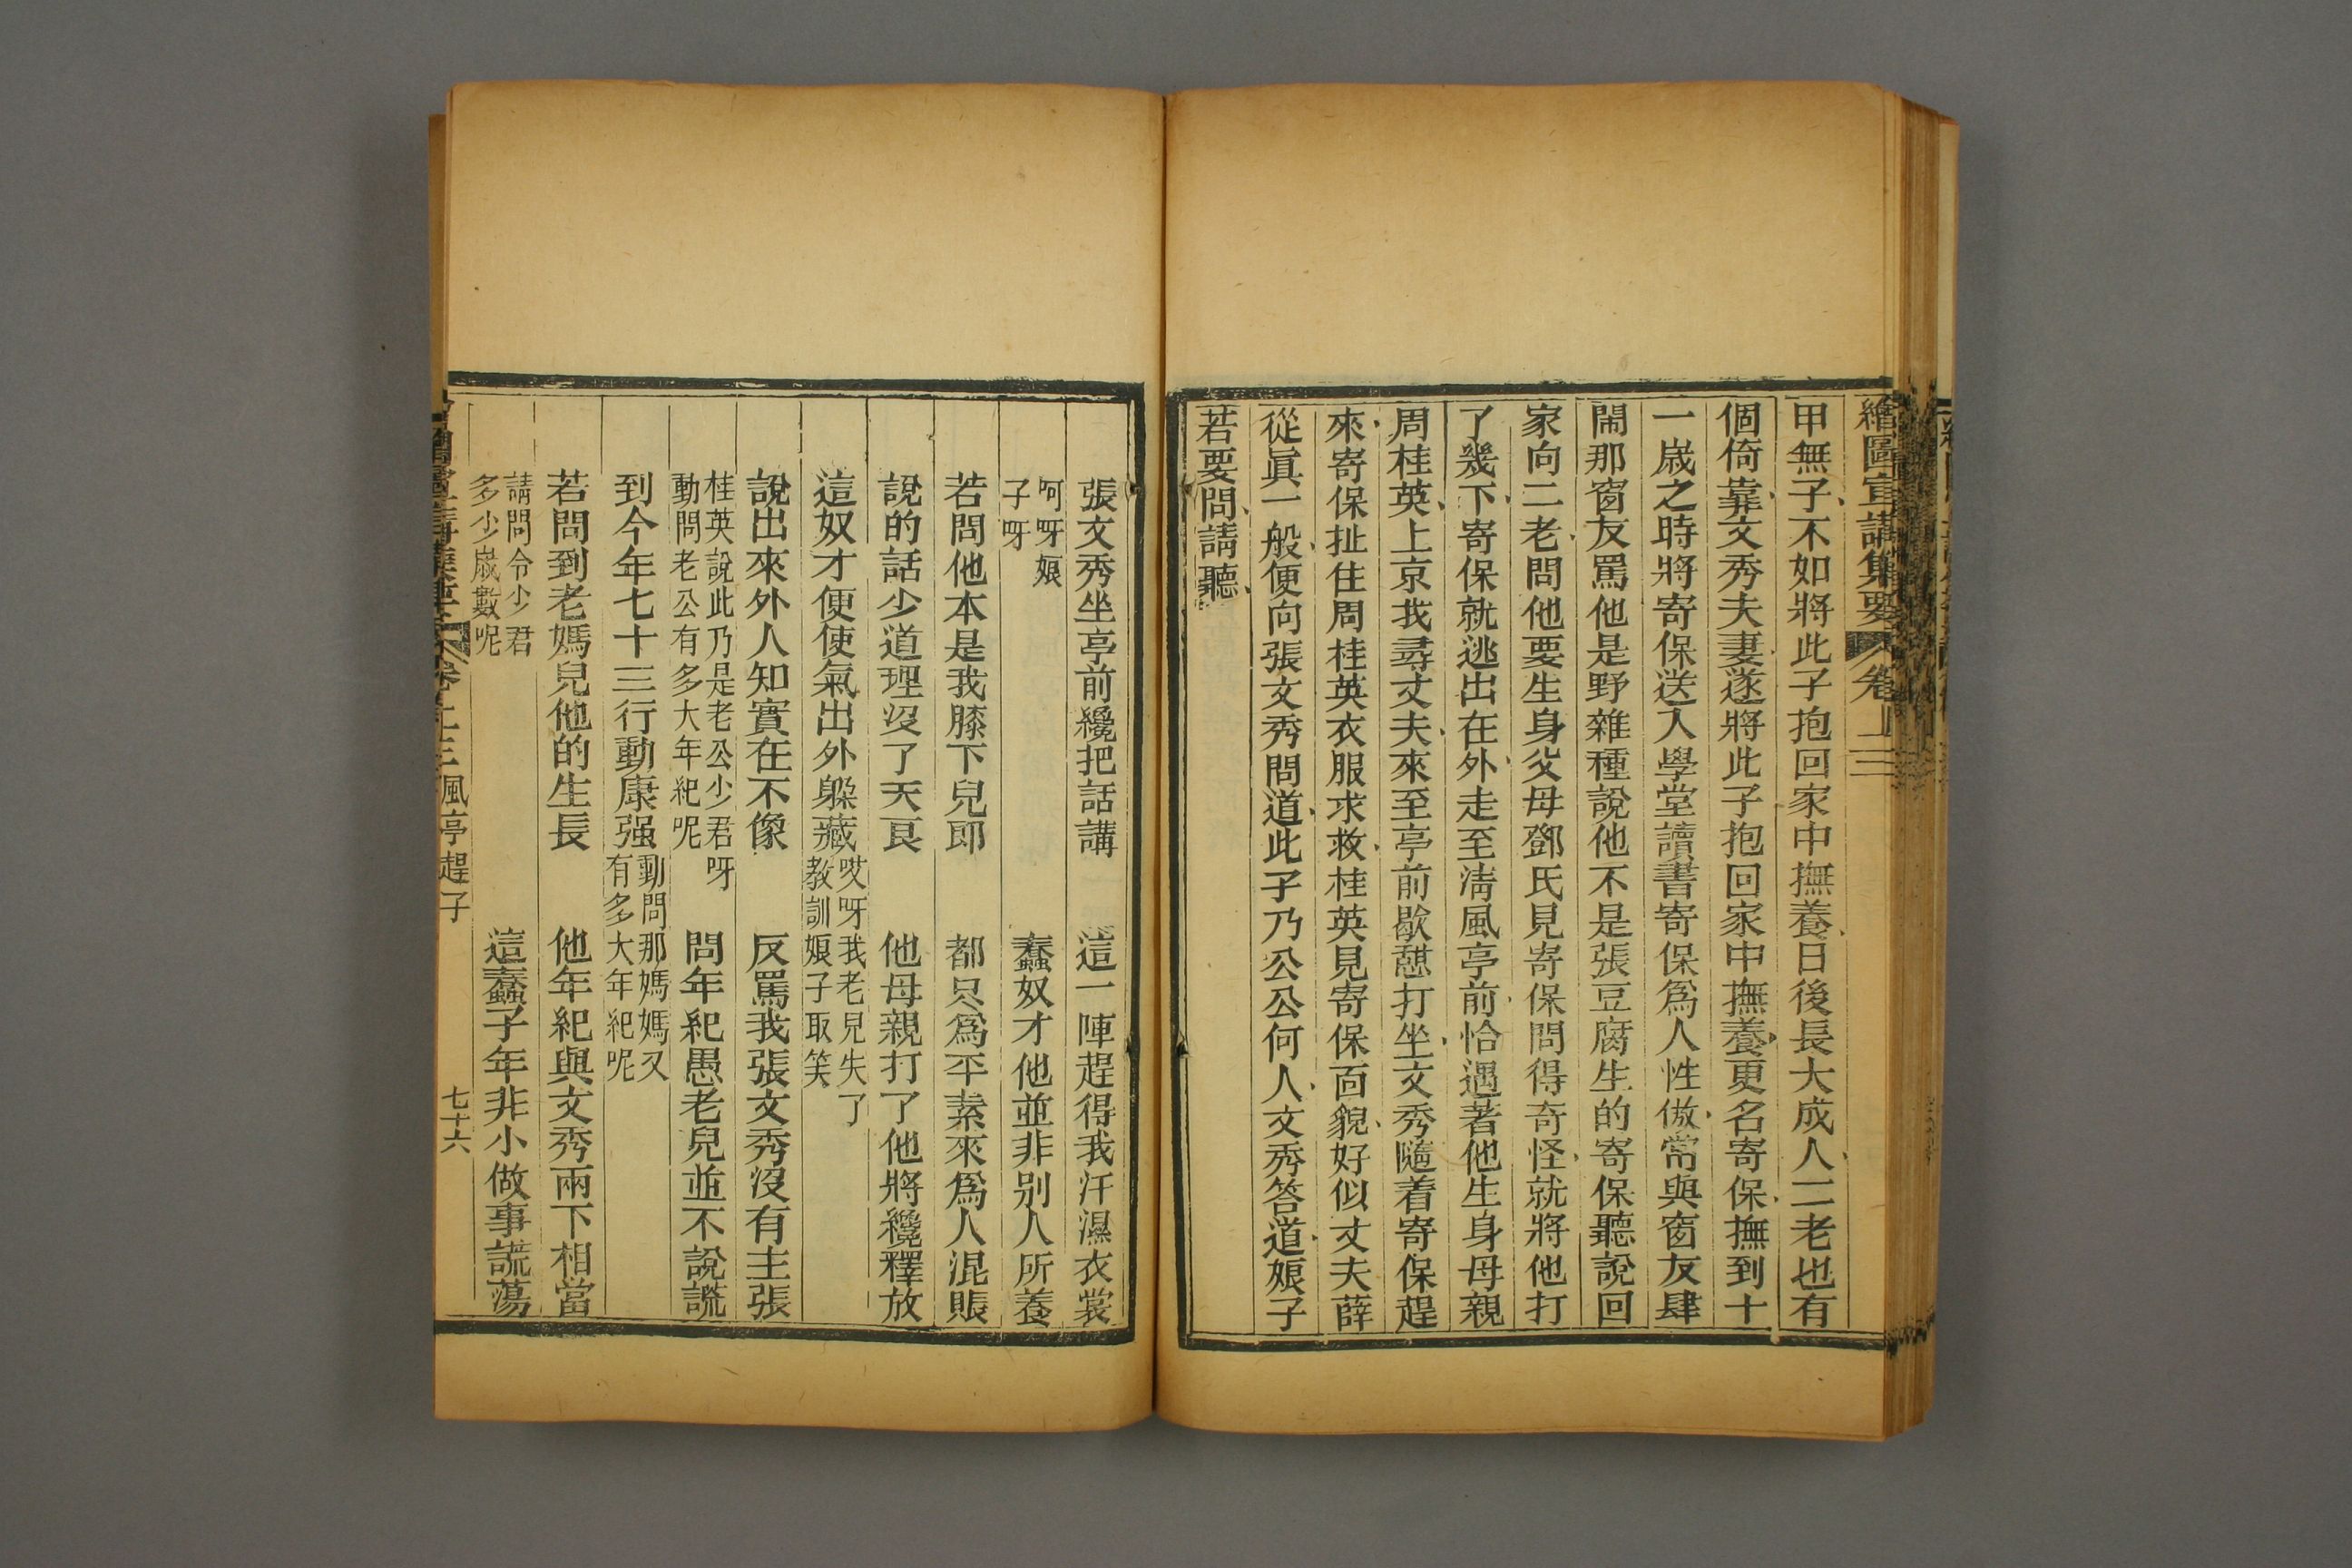 繪圖宣講集要 卷十三
甲無子不如將此子抱回家中撫養日後長大成人二老也有
個倚靠文秀夫妻遂將此子抱回家中撫養更名寄保撫到十
一歲之時將寄保送入學堂讀書寄保爲人性傲常與窗友肆
鬧那窗友罵他是野雜種說他不是張豆腐生的寄保聽說回
家向二老問他要生身父母鄧氏見寄保問得奇怪就將他打
了幾下寄保就逃出在外走至淸風亭前恰遇著他生身母親
周桂英上京我尋丈夫來至亭前歇憇打坐文秀隨着寄保趕
來寄保扯住周桂英衣服求救桂英見寄保面貌好似丈夫薛
從眞一般便向張文秀問道此子乃公公何人文秀答道娘子
若要問請聽
張文秀坐亭前纔把話講 這一陣趕得我汗濕衣裳
呵呀娘
子呀
蠢奴才他並非别人所養
若問他本是我膝下兒郎 都只爲平素來爲人混賬
說的話少道理沒了天良 他母親打了他將纔釋放
這奴才便使氣出外躱藏
哎呀我老兒失了
教訓娘子取笑
說出來外人知實在不像 反罵我張文秀沒有主張
桂英說此乃是老公少君呀
動問老公有多大年紀呢
問年紀愚老兒並不說謊
到今年七十三行動康强
動問那媽媽又
有多大年紀呢
若問到老媽兒他的生長 他年紀與文秀兩下相當
請問令少君
多少歲數呢
這蠢子年非小做事謊蕩
風亭趕子 七十六